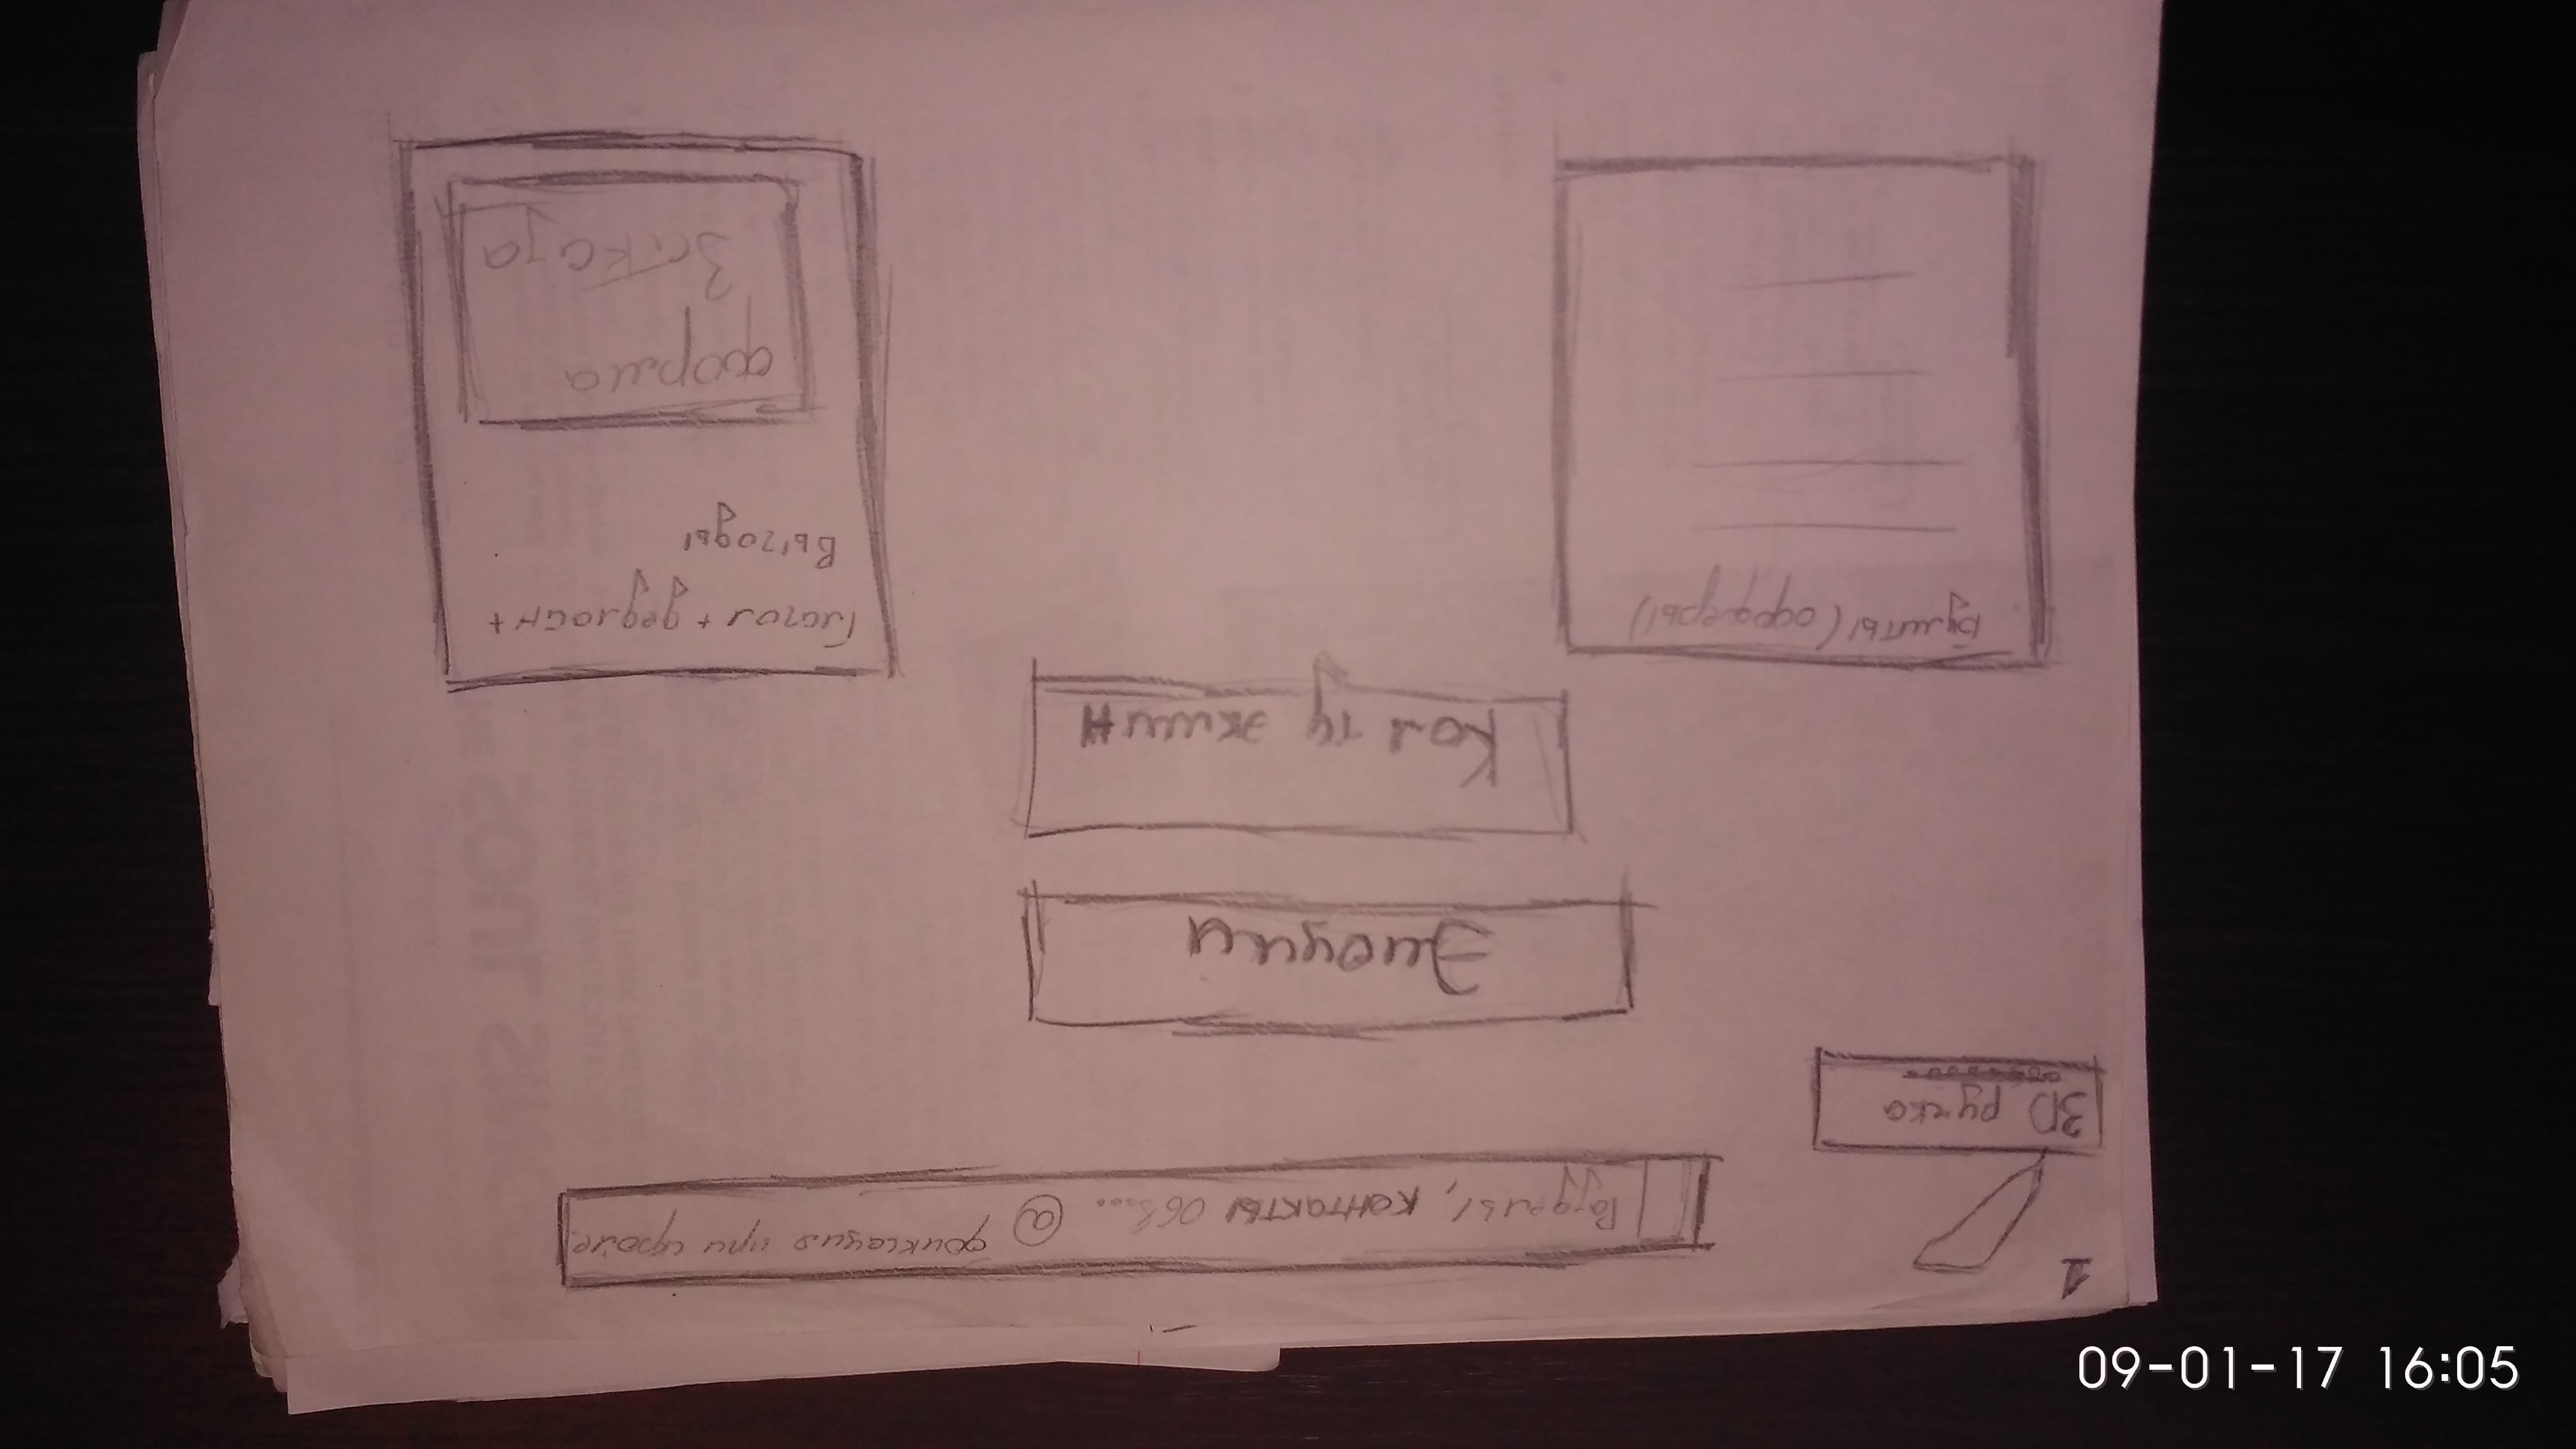 1
3D ручка
Разделы, контакты обз... @ фиксация при скроле
Эмоции
Кол ту экшин
Буллты (офферы)
Глагол + дедлайн +
Выгоды
форма
Заказа
09-01-17 16:05